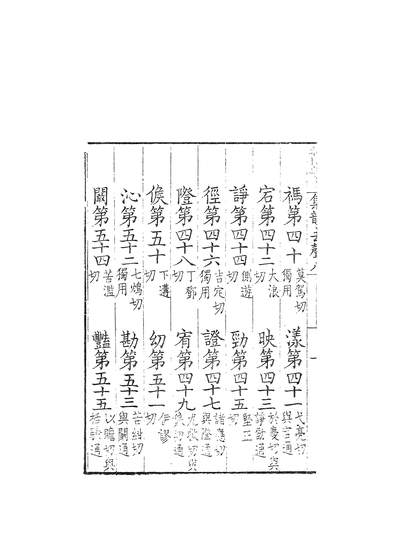 集韻去聲八
禡第四十 莫駕切獨用 漾第四十一 弋亮切與宕通
宕第四十二 大浪切 映第四十三 於慶切與諍勁通
諍第四十四 側迸切 勁第四十五 堅正切
徑第四十六 吉定切獨用 證第四十七 諸應切與隥通
隥第四十八 丁鄧切 宥第四十九 尤救切與候幼通
候第五十 下遘切 幼第五十一 伊謬切
沁第五十二 七鴆切獨用 勘第五十三 苦紺切與闞通
闞第五十四 苦濫切 豔第五十五 以贍切與驗通